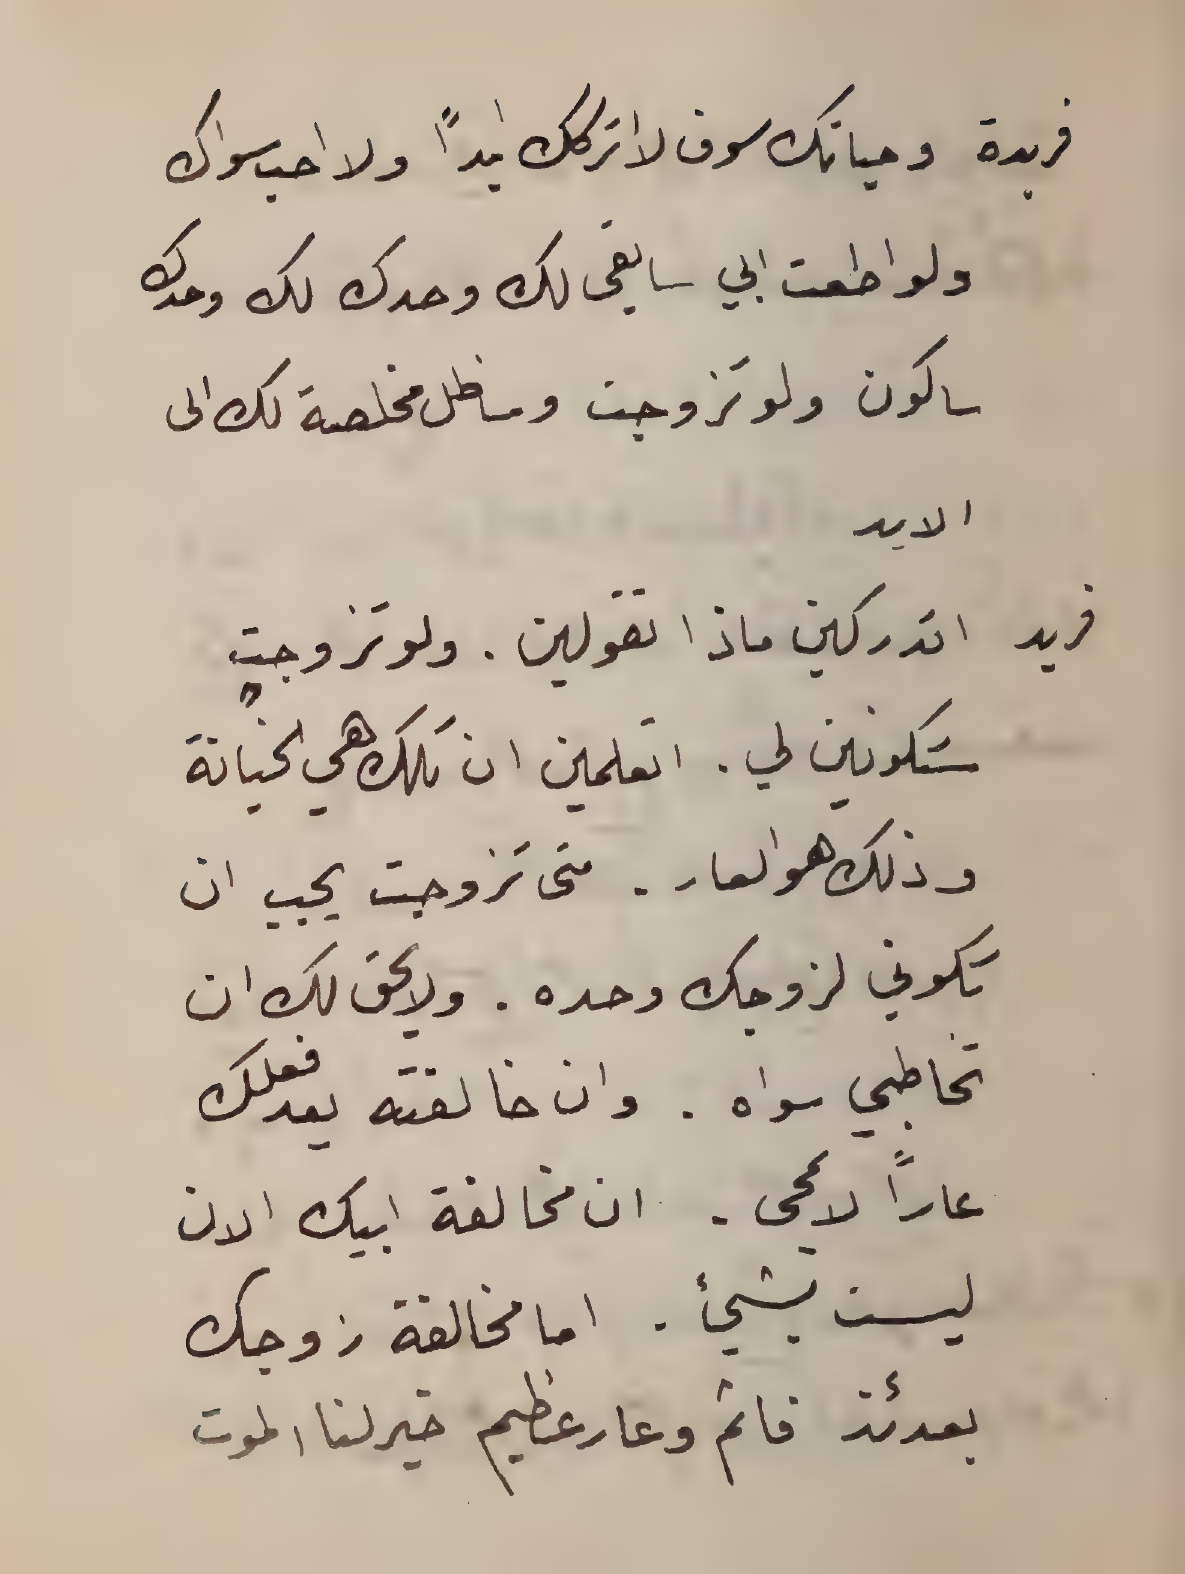 فريدة وحياتك سوف لا اتركك ابداً ولا احب سواك
ولو اطعت ابي سابقى لك وحدك لك وحدك
ساكون ولو تزوجت وساظل مخلصة لك الى
الابد
فريد اتدركين ماذا تقولين . ولو تزوجتِ
ستكونين لي . اتعلمين ان تلك هي الخيانة
وذلك هو العار . متى تزوجت يجب ان
تكوني لزوجك وحده . ولا يحق لك ان
تخاطبي سواه . وان خالفته يعد فعلك
عاراً لا يمحى . ان مخالفة ابيك الان
ليست بشيئ . اما مخالفة زوجك
بعدئذ فاثم وعار عظيم خير لنا الموت